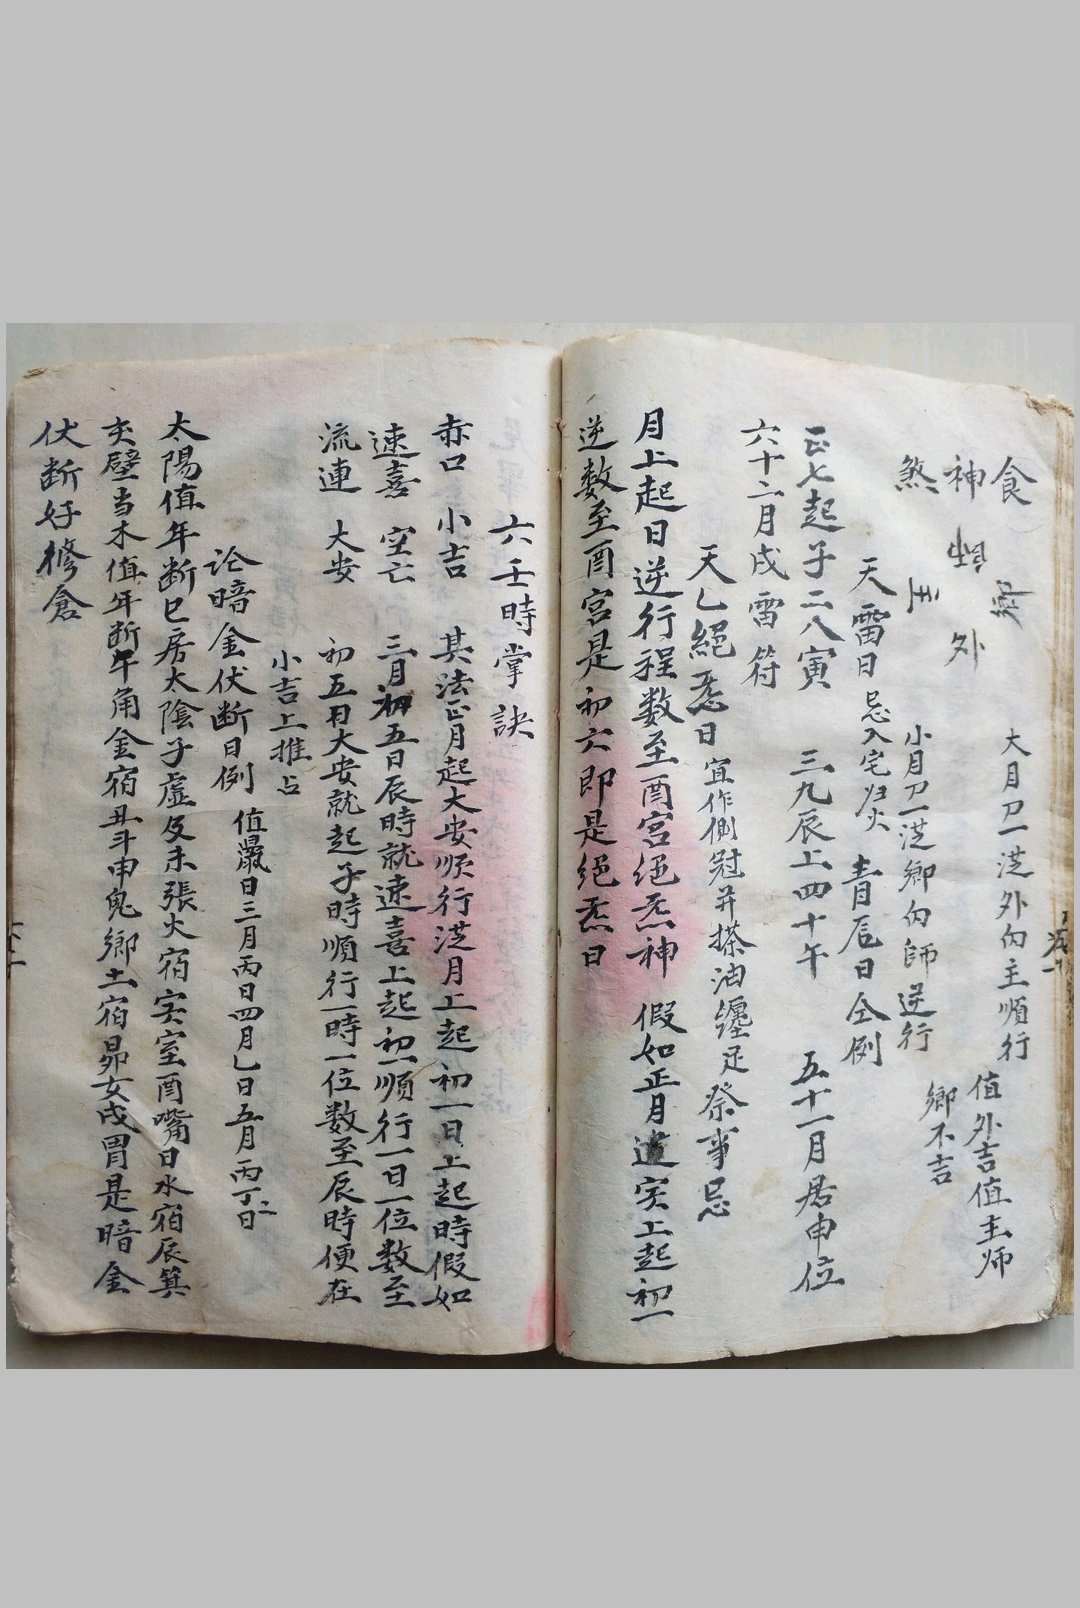 食 鄉 大月初一從外向主順行 值外吉值主师
神 外
煞 主 小月初一從鄉向師逆行 鄉不吉
天雷日 忌入宅归火 青辰日 仝例
正七起子二八寅 三九辰上四十午 五十一月居申位
六十二月戌雷符
天乙絕炁日 宜作側冠并搽油纏足祭事忌
月上起日逆行程数至酉宮絕炁神 假如正月 寅上起初一
逆数至酉宮是初六即是絕炁日
六壬時掌訣
赤口 小吉 其法正月起大安順行從月上起初一日上起時假如
速喜 空亡 三月初五日辰時就速喜上起初一順行一日一位数至
流連 大安 初五日大安就起子時順行一時一位数至辰時便在
小吉上推占
论暗金伏断日例 值 日三月丙日四月乙日五月丙丁二日
太陽值年断巳房太陰子虛及未張火宿寅室酉嘴日水宿辰箕
亥壁当木值年断午角金宿丑斗申鬼鄉土宿昴女戌胃是暗金
伏断好修倉